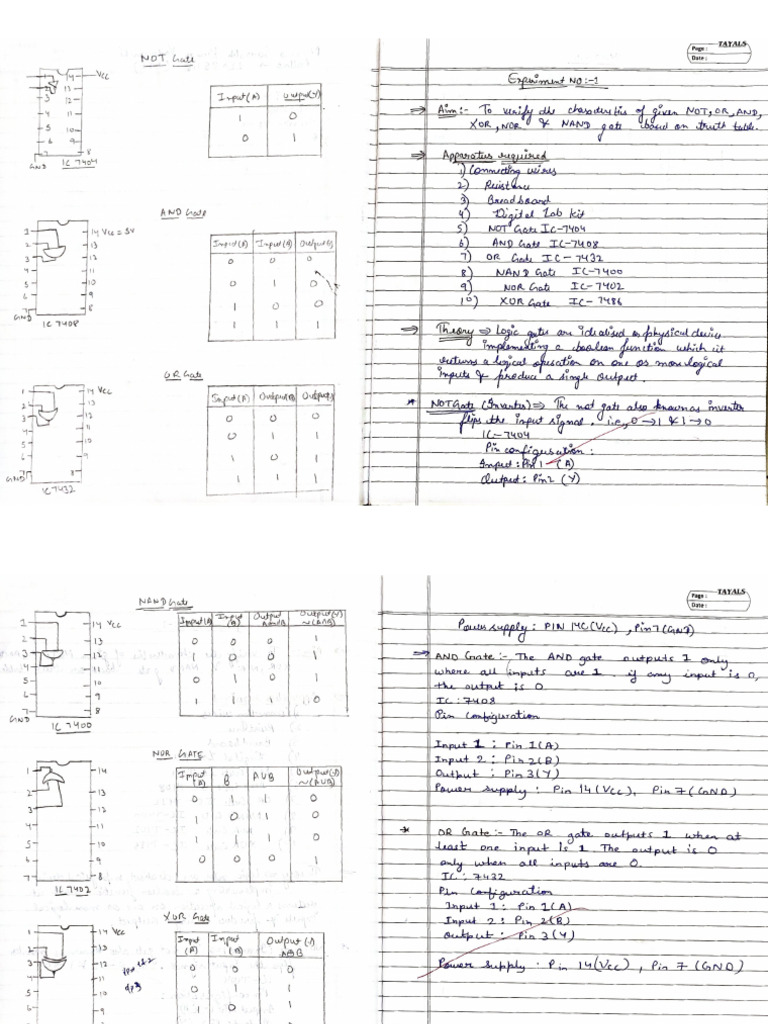 NOT Gate
14 VCC
2
13
3
12
4
11
5
10
6
9
7
8
GND
IC 7404
Input(A) Output(Y)
1 0
0 1
AND Gate
1
14 VCC = 5V
2
13
3
12
4
11
5
10
6
9
7
8
GND
IC 7408
Input(A) Input(B) Output(Y)
0 0 0
0 1 0
1 0 0
1 1 1
OR Gate
1
14 VCC
2
13
3
12
4
11
5
6
9
7
8
GND
IC 7432
Input(A) Output(B) Output(Y)
0 0 0
0 1 1
1 0 1
1 1 1
TAYALS
Page :
Date :
Experiment NO:-1
⇒ Aim:- To verify the characteristics of given NOT, OR, AND,
XOR, NOR & NAND gate based on truth table.
⇒ Apparatus required
1) Connecting wires
2) Resistance
3) Breadboard
4) Digital Lab kit
5) NOT Gate IC-7404
6) AND Gate IC-7408
7) OR Gate IC-7432
8) NAND Gate IC-7400
9) NOR Gate IC-7402
10) XOR Gate IC-7486
⇒ Theory ⇒ Logic gates are idealised or physical device
implementing a boolean function which it
returns a logical operation on one or more logical
inputs & produce a single output.
* NOT Gate (Inverter) ⇒ The not gate also known as inverter
flips the input signal. i.e., 0→1 & 1→0
IC-7404
Pin configuration:
Input: Pin 1 (A)
Output: Pin 2 (Y)
NAND Gate
1
14 VCC
2
13
3
12
4
11
5
10
6
9
7
8
GND
IC 7400
Input(A) Input(B) Output A∩B Output(Y) ~(A∩B)
0 0 0 1
1 0 0 1
0 1 0 1
1 1 1 0
NOR GATE
1
14
2
13
3
12
4
11
5
10
6
9
7
8
IC 7402
Input(A) B AUB Output(Y) ~(AUB)
0 1 1 0
1 0 1 0
1 1 1 0
0 0 0 1
XOR Gate
1
14 VCC
2
13
3
12
4
11
5
10
6
9
Input(A) Input(B) Output(Y)
0 0 0
0 1 1
1 0 1
TAYALS
Page :
Date :
Power supply: PIN 14C(VCC), Pin 7 (GND)
⇒ AND Gate:- The AND gate outputs 1 only
where all inputs are 1. if any input is 0,
the output is 0.
IC: 7408
Pin Configuration
Input 1: Pin 1(A)
Input 2: Pin 2(B)
Output: Pin 3(Y)
Power supply: Pin 14(VCC), Pin 7 (GND)
* OR Gate:- The OR gate outputs 1 when at
least one input is 1. The output is 0
only when all inputs are 0.
IC: 7432
Pin Configuration
Input 1: Pin 1(A)
Input 2: Pin 2(B)
Output: Pin 3(Y)
Power Supply: Pin 14(VCC), Pin 7 (GND)